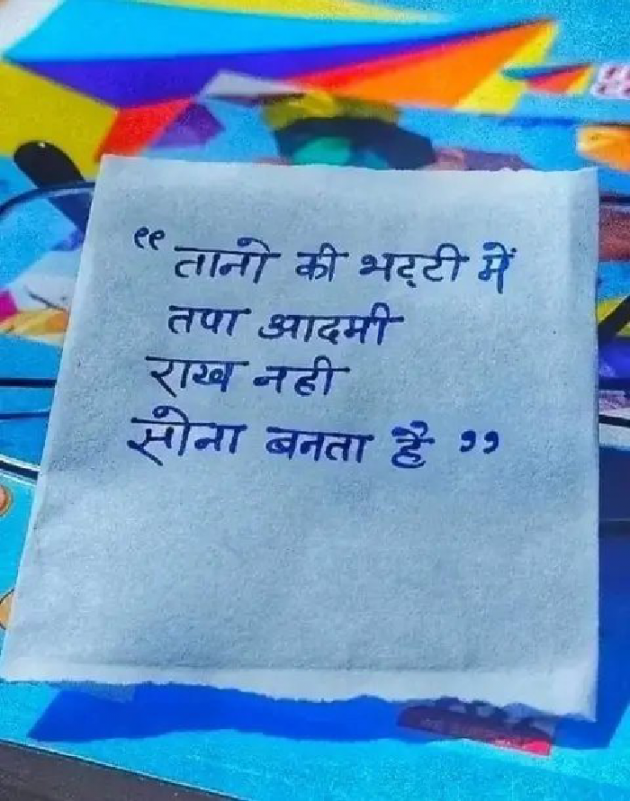 “ तानो की भट्टी में
तपा आदमी
राख नही
सोना बनता है ”